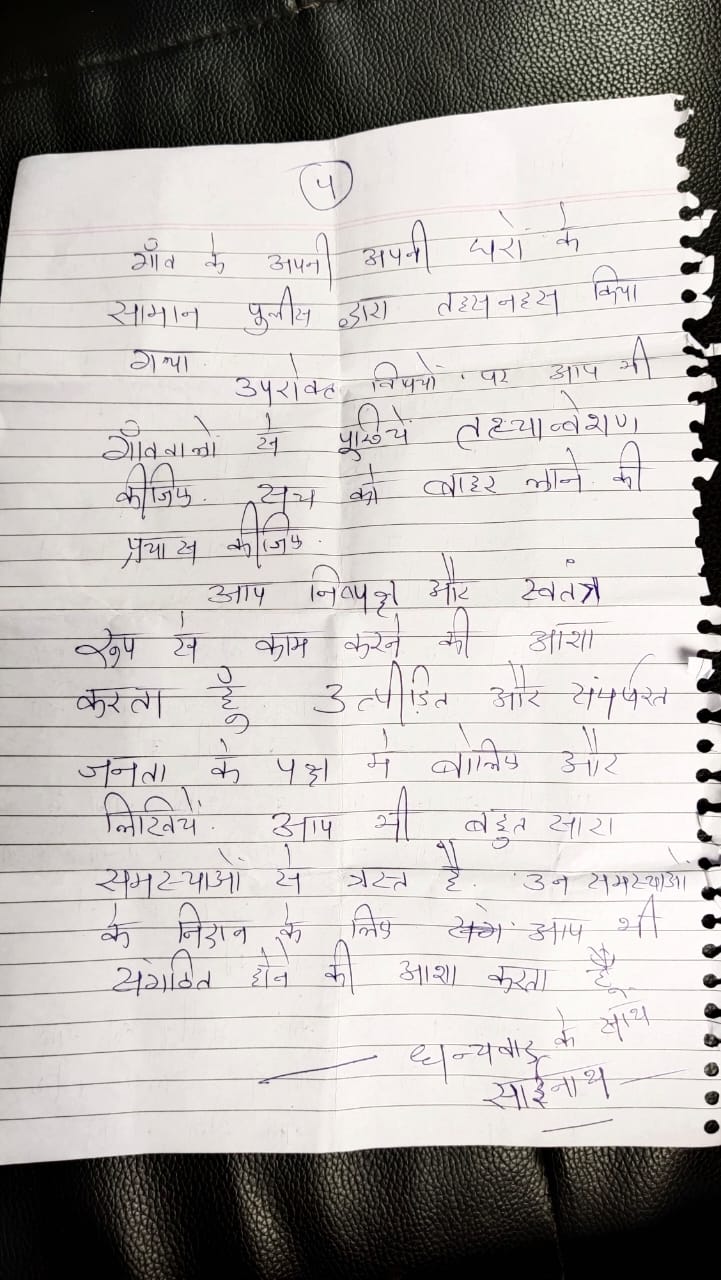 ५
गाँव के अपनी अपनी घरों के
सामान पुलीस द्वारा तहसनहस किया
गया.
उपरोक्त विषयों पर आप भी
गाँववालों से पूछिये तथ्यान्वेशण
कीजिए. सच को बाहर लाने की
प्रयास कीजिए.
आप निष्पक्ष और स्वतंत्र
रूप से काम करने की आशा
करता हूँ उत्पीड़ित और संघर्षरत
जनता के पक्ष में बोलिए और
लिखियें. आप भी बहुत सारा
समस्याओं से त्रस्त है. उन समस्याओं
के निदान के लिए आप भी
संगठित होने की आशा करता हूँ.
धन्यवाद के साथ
साईनाथ